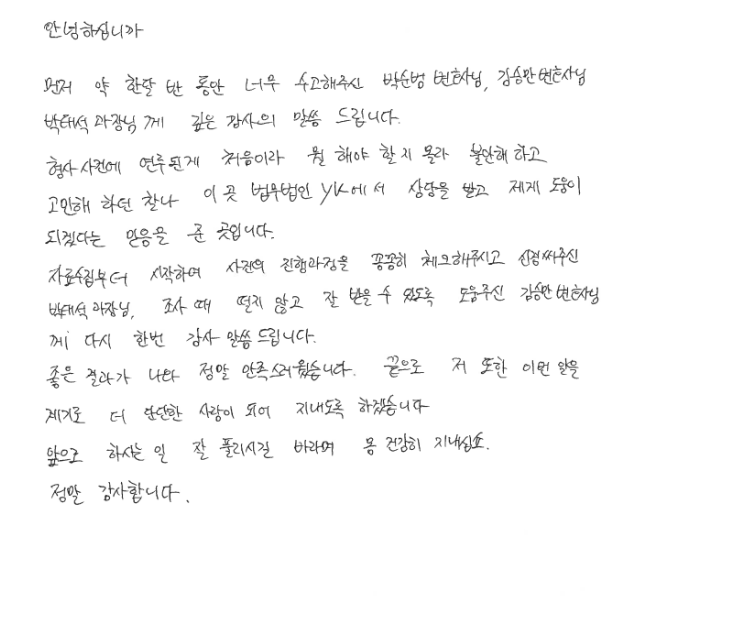 안녕하십니까
먼저 약 한달 반 동안 너무 수고해주신 박순범 변호사님, 김승만 변호사님
박태석 과장님께 깊은 감사의 말씀 드립니다.
형사 사건에 연루된게 처음이라 뭘 해야 할지 몰라 불안해 하고
고민해 하던 찰나 이 곳 법무법인 YK에서 상담을 받고 제게 도움이
되겠다는 믿음을 준 곳입니다.
자료수집부터 시작하여 사건의 진행과정을 꼼꼼히 체크해주시고 신경써주신
박태석 과장님, 조사 때 떨지 않고 잘 받을 수 있도록 도움주신 김승만 변호사님
께 다시 한번 감사 말씀 드립니다.
좋은 결과가 나와 정말 만족스러웠습니다. 끝으로 저 또한 이번 일을
계기로 더 단단한 사람이 되어 지내도록 하겠습니다
앞으로 하시는 일 잘 풀리시길 바라며 몸 건강히 지내십쇼.
정말 감사합니다.